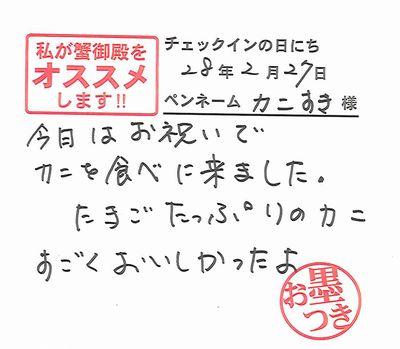 私が蟹御殿を
オススメ
します!!
チェックインの日にち
28年2月27日
ペンネーム カニすき 様
今日はお祝いで
カニを食べに来ました。
たまごたっぷりのカニ
すごくおいしかったよ
お墨つき